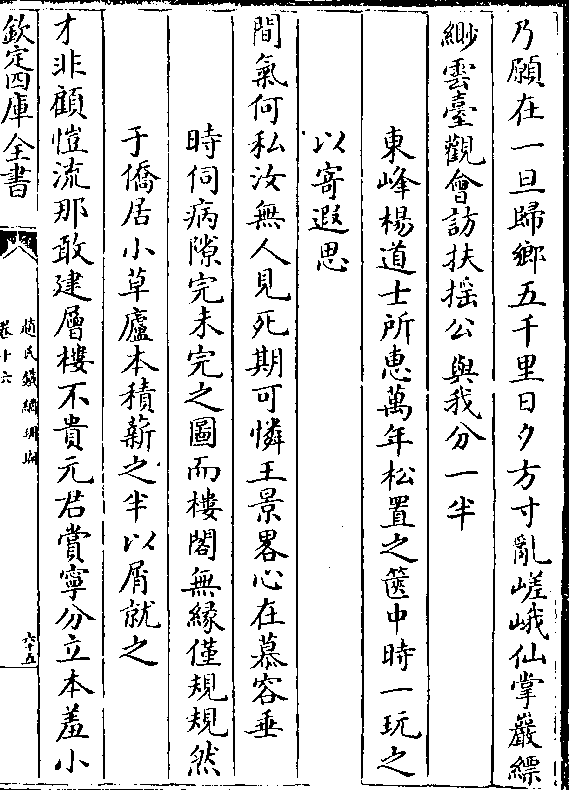 乃願在一旦歸鄉五千里日夕方寸亂嵯峨仙掌巖縹
緲雲臺觀會訪扶揺公與我分一半
東峰楊道士所惠萬年松置之篋中時一玩之
以寄遐思
間氣何私汝無人見死期可憐王景畧心在慕容垂
時伺病隙完未完之圖而樓閣無緣僅規規然
于僑居小草廬本積薪之半以屑就之
才非顧愷流那敢建層樓不貴元君賞寧分立本羞小
欽定四庫全書
趙氏鐵網珊瑚
卷十六
六十五